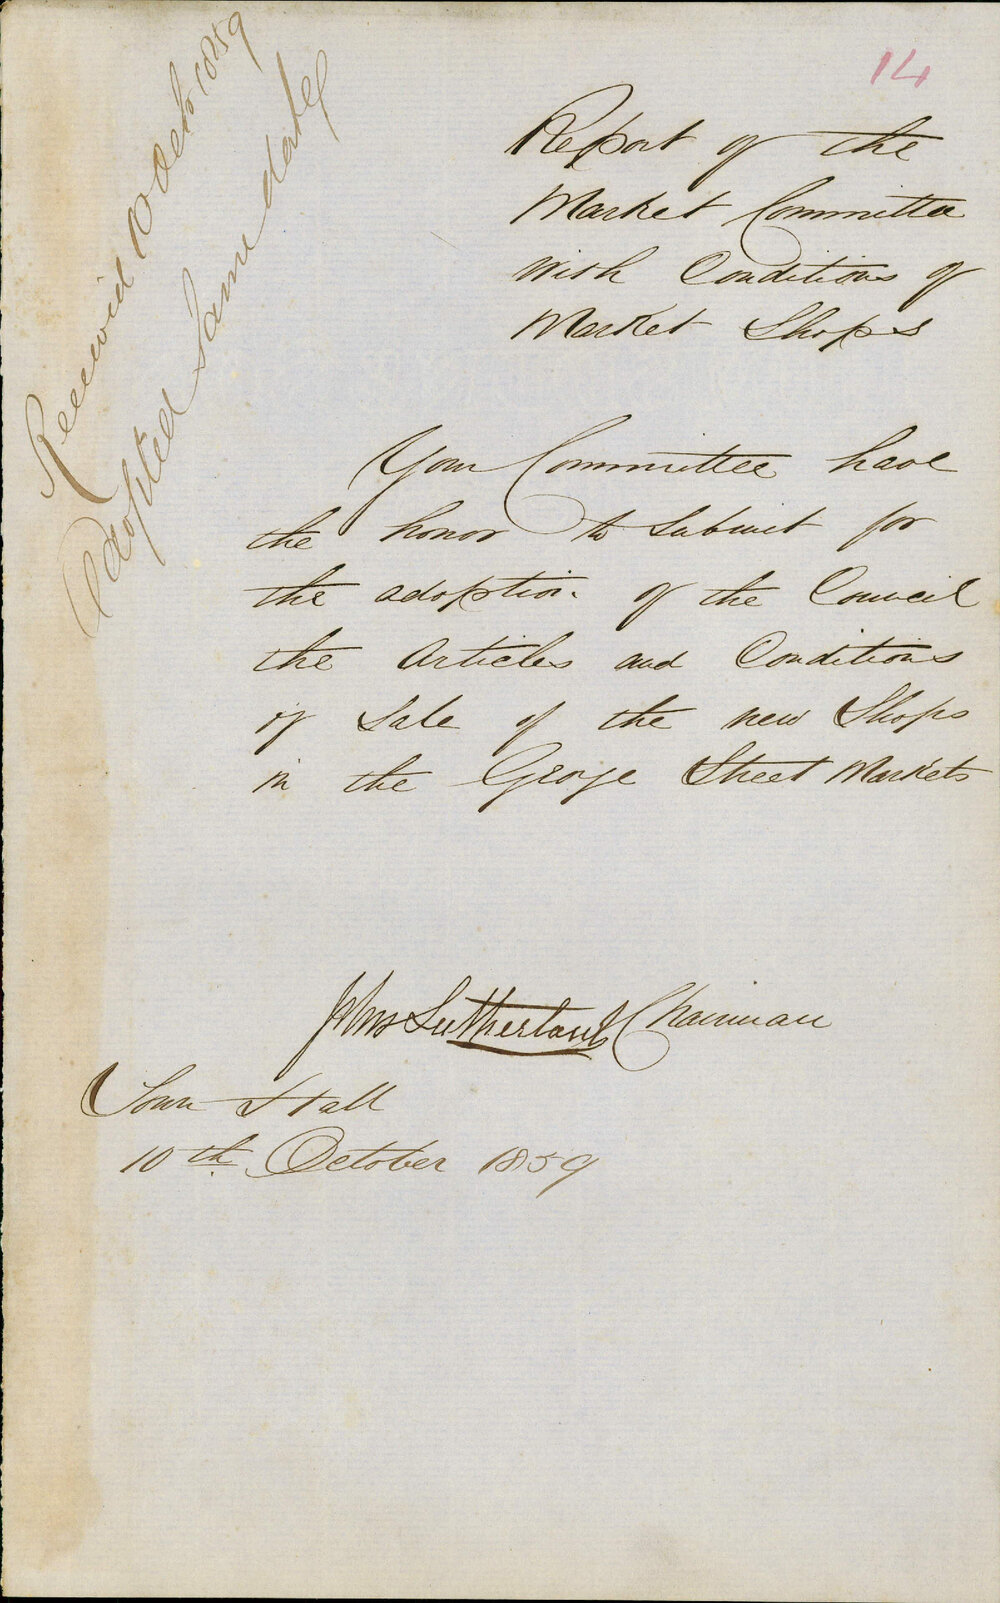 14
Received 10 Octr 1859
Adopted Same date
Report of the
Market Committee
with Conditions of
Market Shops
Your Committee have
the honor to submit for
the adoption of the Council
the Articles and Conditions
of Sale of the new Shops
in the George Street Markets
John Sutherland Chairman
Town Hall
10th October 1859